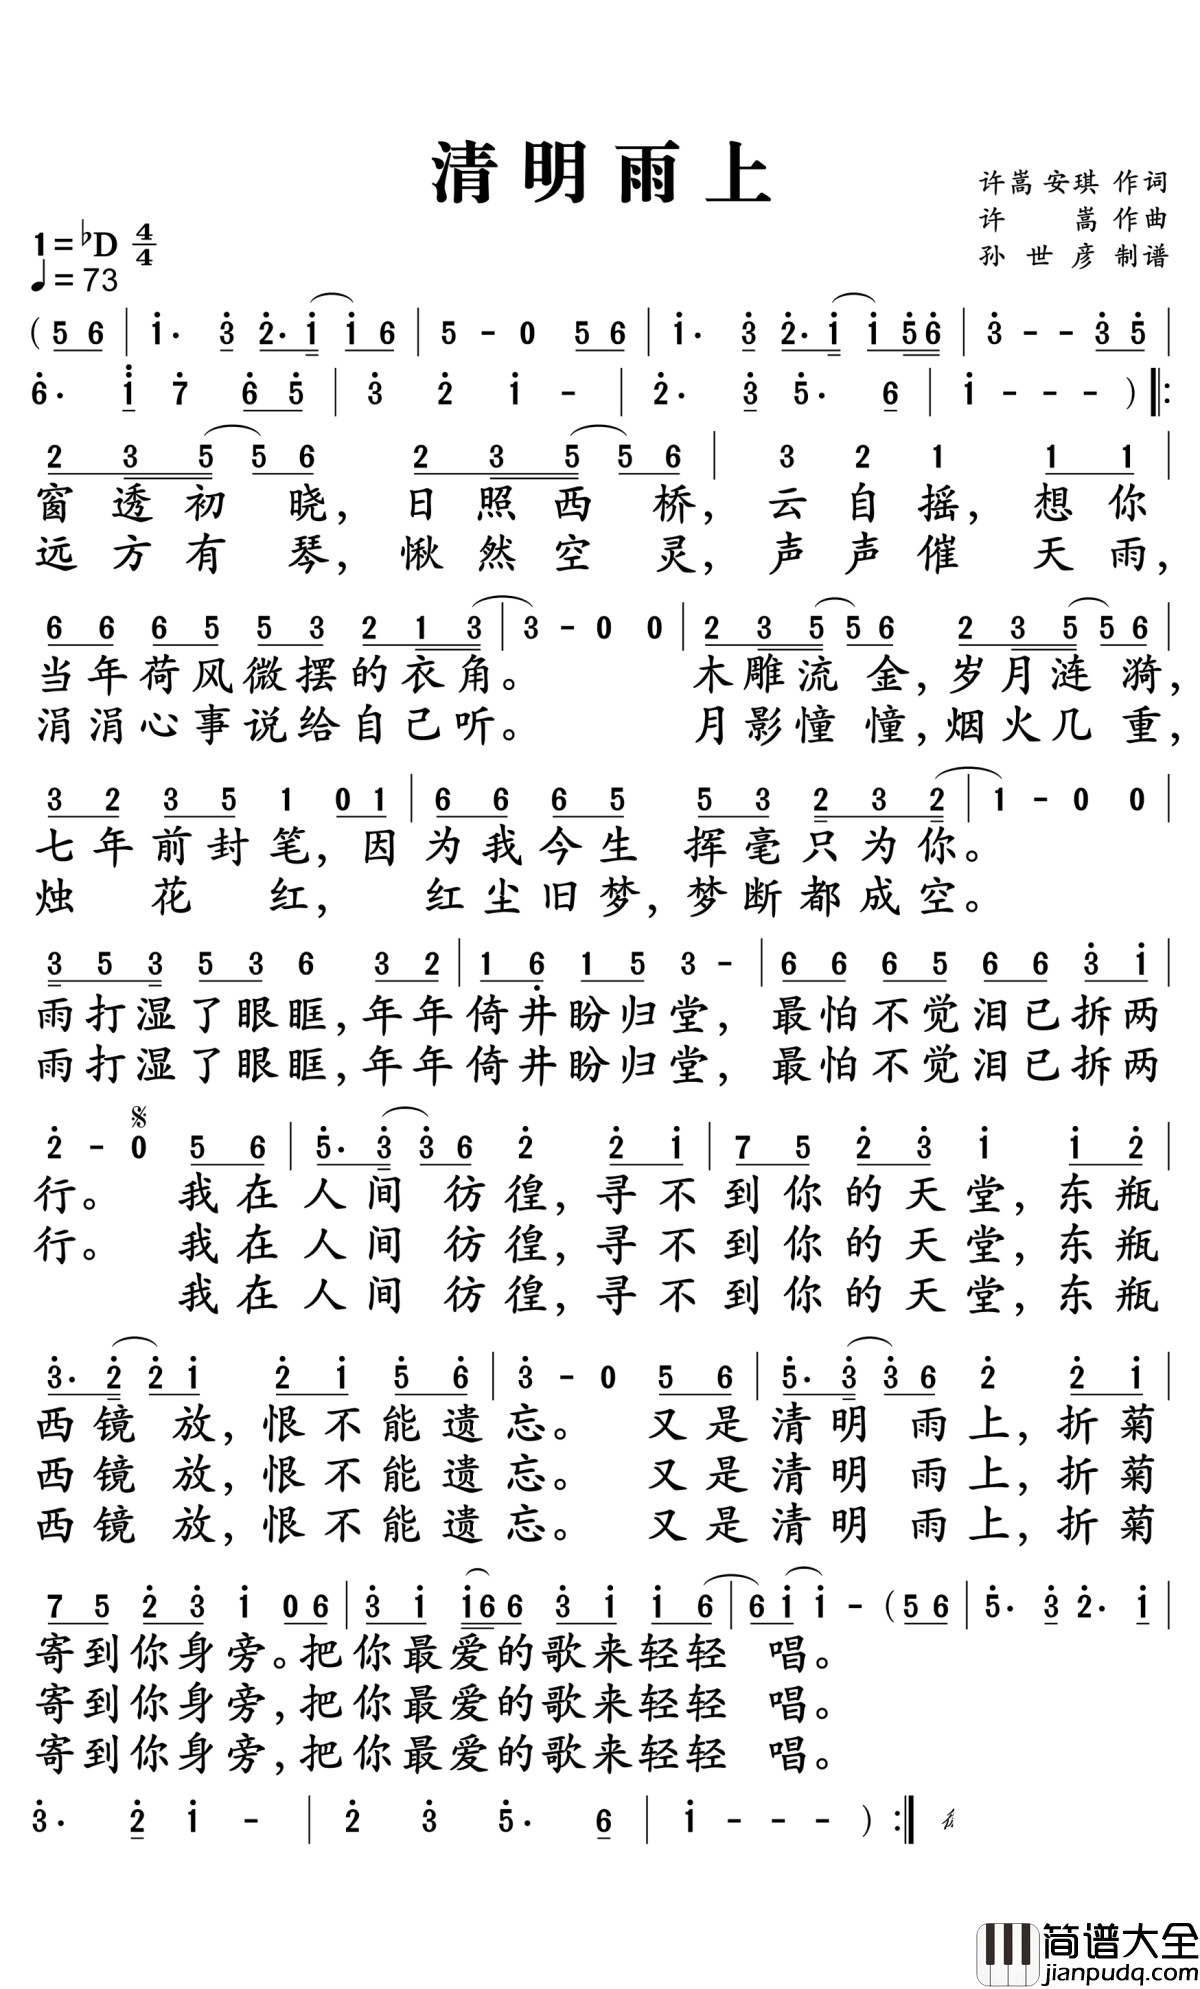 清明雨上
许嵩 安琪 作词
许 嵩 作曲
孙世彦 制谱
1=♭D 4/4
♩=73
(5 6 | 1· 3 2· 1 1 6 | 5 - 0 5 6 | 1· 3 2· 1 1 5 6 | 3 - - 3 5 |
6· 1 7 6 5 | 3 2 1 - | 2· 3 5· 6 | 1 - - - ) ‖:
2 3 5 5 6 2 3 5 5 6 | 3 2 1 1 1 |
窗透初 晓，日照西 桥，云自摇，想你
远方有 琴，愀然空 灵，声声催 天雨，
6 6 6 5 5 3 2 1 3 | 3 - 0 0 | 2 3 5 5 6 2 3 5 5 6 |
当年荷风微摆的衣角。 木雕流 金，岁月涟 漪，
涓涓心事说给自己听。 月影憧 憧，烟火几 重，
3 2 3 5 1 0 1 | 6 6 6 5 5 3 2 3 2 | 1 - 0 0 |
七年前封笔，因为我今生 挥毫只为你。
烛 花 红， 红尘旧梦，梦断都成空。
3 5 3 5 3 6 3 2 | 1 6 1 5 3 - | 6 6 6 5 6 6 3 1 |
雨打湿了眼眶，年年倚井盼归堂， 最怕不觉泪已拆两
雨打湿了眼眶，年年倚井盼归堂， 最怕不觉泪已拆两
𝄋
2 - 0 5 6 | 5· 3 3 6 2 2 1 | 7 5 2 3 1 1 2 |
行。 我在人间 彷徨，寻不到你的天堂，东瓶
行。 我在人间 彷徨，寻不到你的天堂，东瓶
我在人间 彷徨，寻不到你的天堂，东瓶
3· 2 2 1 2 1 5 6 | 3 - 0 5 6 | 5· 3 3 6 2 2 1 |
西镜 放，恨不能遗忘。 又是清明 雨上，折菊
西镜 放，恨不能遗忘。 又是清明 雨上，折菊
西镜 放，恨不能遗忘。 又是清明 雨上，折菊
7 5 2 3 1 0 6 | 3 1 1 6 6 3 1 1 6 | 6 1 1 - (5 6 | 5· 3 2· 1 |
寄到你身旁。把你最爱的歌来轻轻 唱。
寄到你身旁，把你最爱的歌来轻轻 唱。
寄到你身旁，把你最爱的歌来轻轻 唱。
3· 2 1 - | 2 3 5· 6 | 1 - - - ) :‖
简谱大全
jianpudq.com